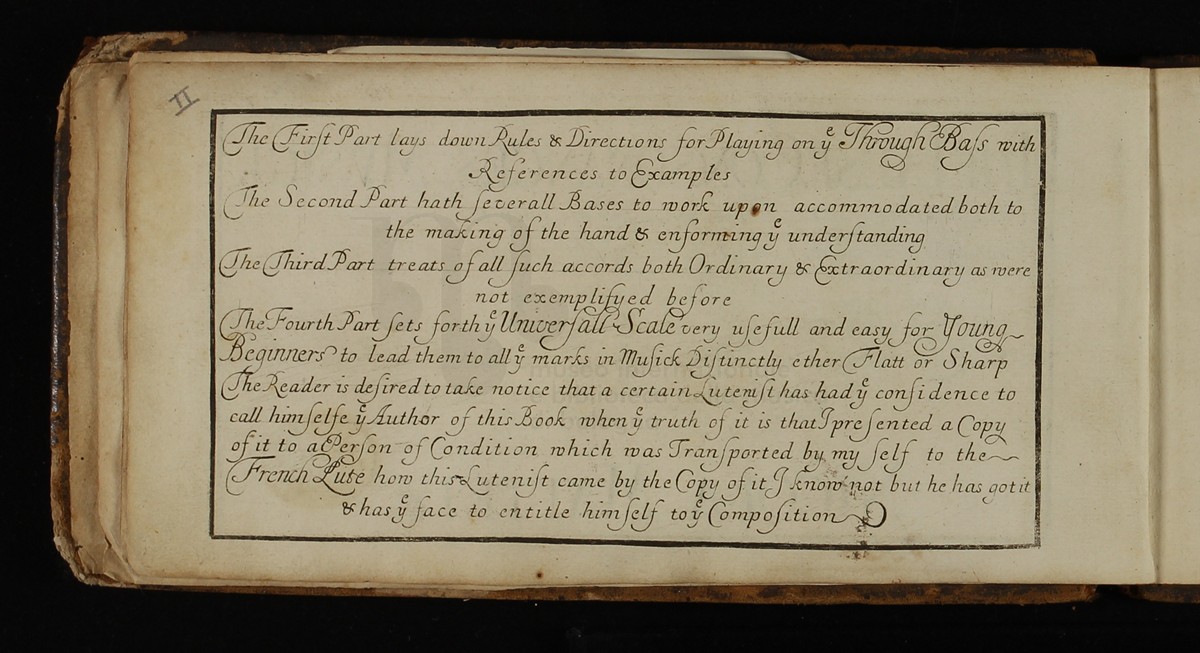 II
The First Part lays down Rules & Directions for Playing on yᵉ Through Bass with
References to Examples
The Second Part hath severall Bases to work upon accommodated both to
the making of the hand & enforming yᵉ understanding
The Third Part treats of all such accords both Ordinary & Extraordinary as were
not exemplifyed before
The Fourth Part sets forth yᵉ Universall Scale very usefull and easy for Young
Beginners to lead them to all yᵉ marks in Musick Distinctly ether Flatt or Sharp
The Reader is desired to take notice that a certain Lutenist has had yᵉ confidence to
call himselfe yᵉ Author of this Book when yᵉ truth of it is that I presented a Copy
of it to a Person of Condition which was Transported by my self to the
French Lute how this Lutenist came by the Copy of it I know not but he has got it
& has yᵉ face to entitle himself to yᵉ Composition